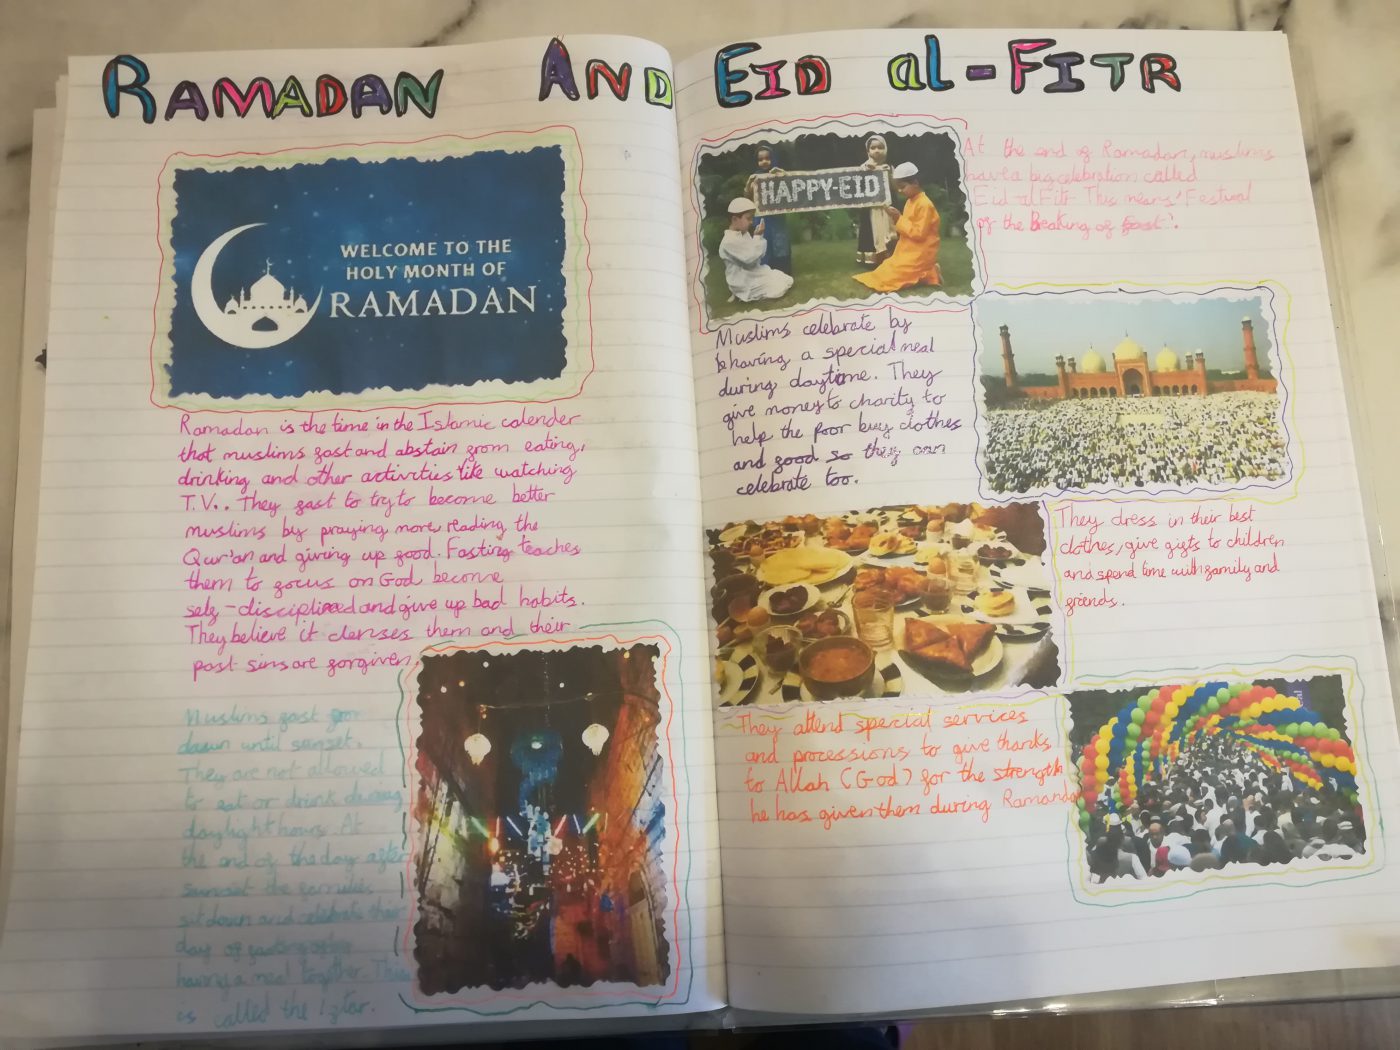 RAMADAN AND EID al-FITR
WELCOME TO THE
HOLY MONTH OF
RAMADAN
Ramadan is the time in the Islamic calender
that muslims fast and abstain from eating,
drinking and other activities like watching
T.V.. They fast to try to become better
muslims by praying more, reading the
Qur'an and giving up food. Fasting teaches
them to focus on God become
self-disciplined and give up bad habits.
They believe it clenses them and their
past sins are forgiven.
Muslims fast from
dawn until sunset.
They are not allowed
to eat or drink during
daylight hours. At
the end of the day after
sunset the families
sit down and celebrate their
day of fasting by
having a meal together. This
is called the Iftar.
HAPPY-EID
At the end of Ramadan, muslims
have a big celebration called
Eid al Fitr. This means 'Festival
of the Beaking of fast'.
Muslims celebrate by
having a special meal
during daytime. They
give money to charity to
help the poor buy clothes
and food so they can
celebrate too.
They dress in their best
clothes, give gifts to children
and spend time with family and
friends.
They attend special services
and processions to give thanks
to Allah (God) for the strength
he has given them during